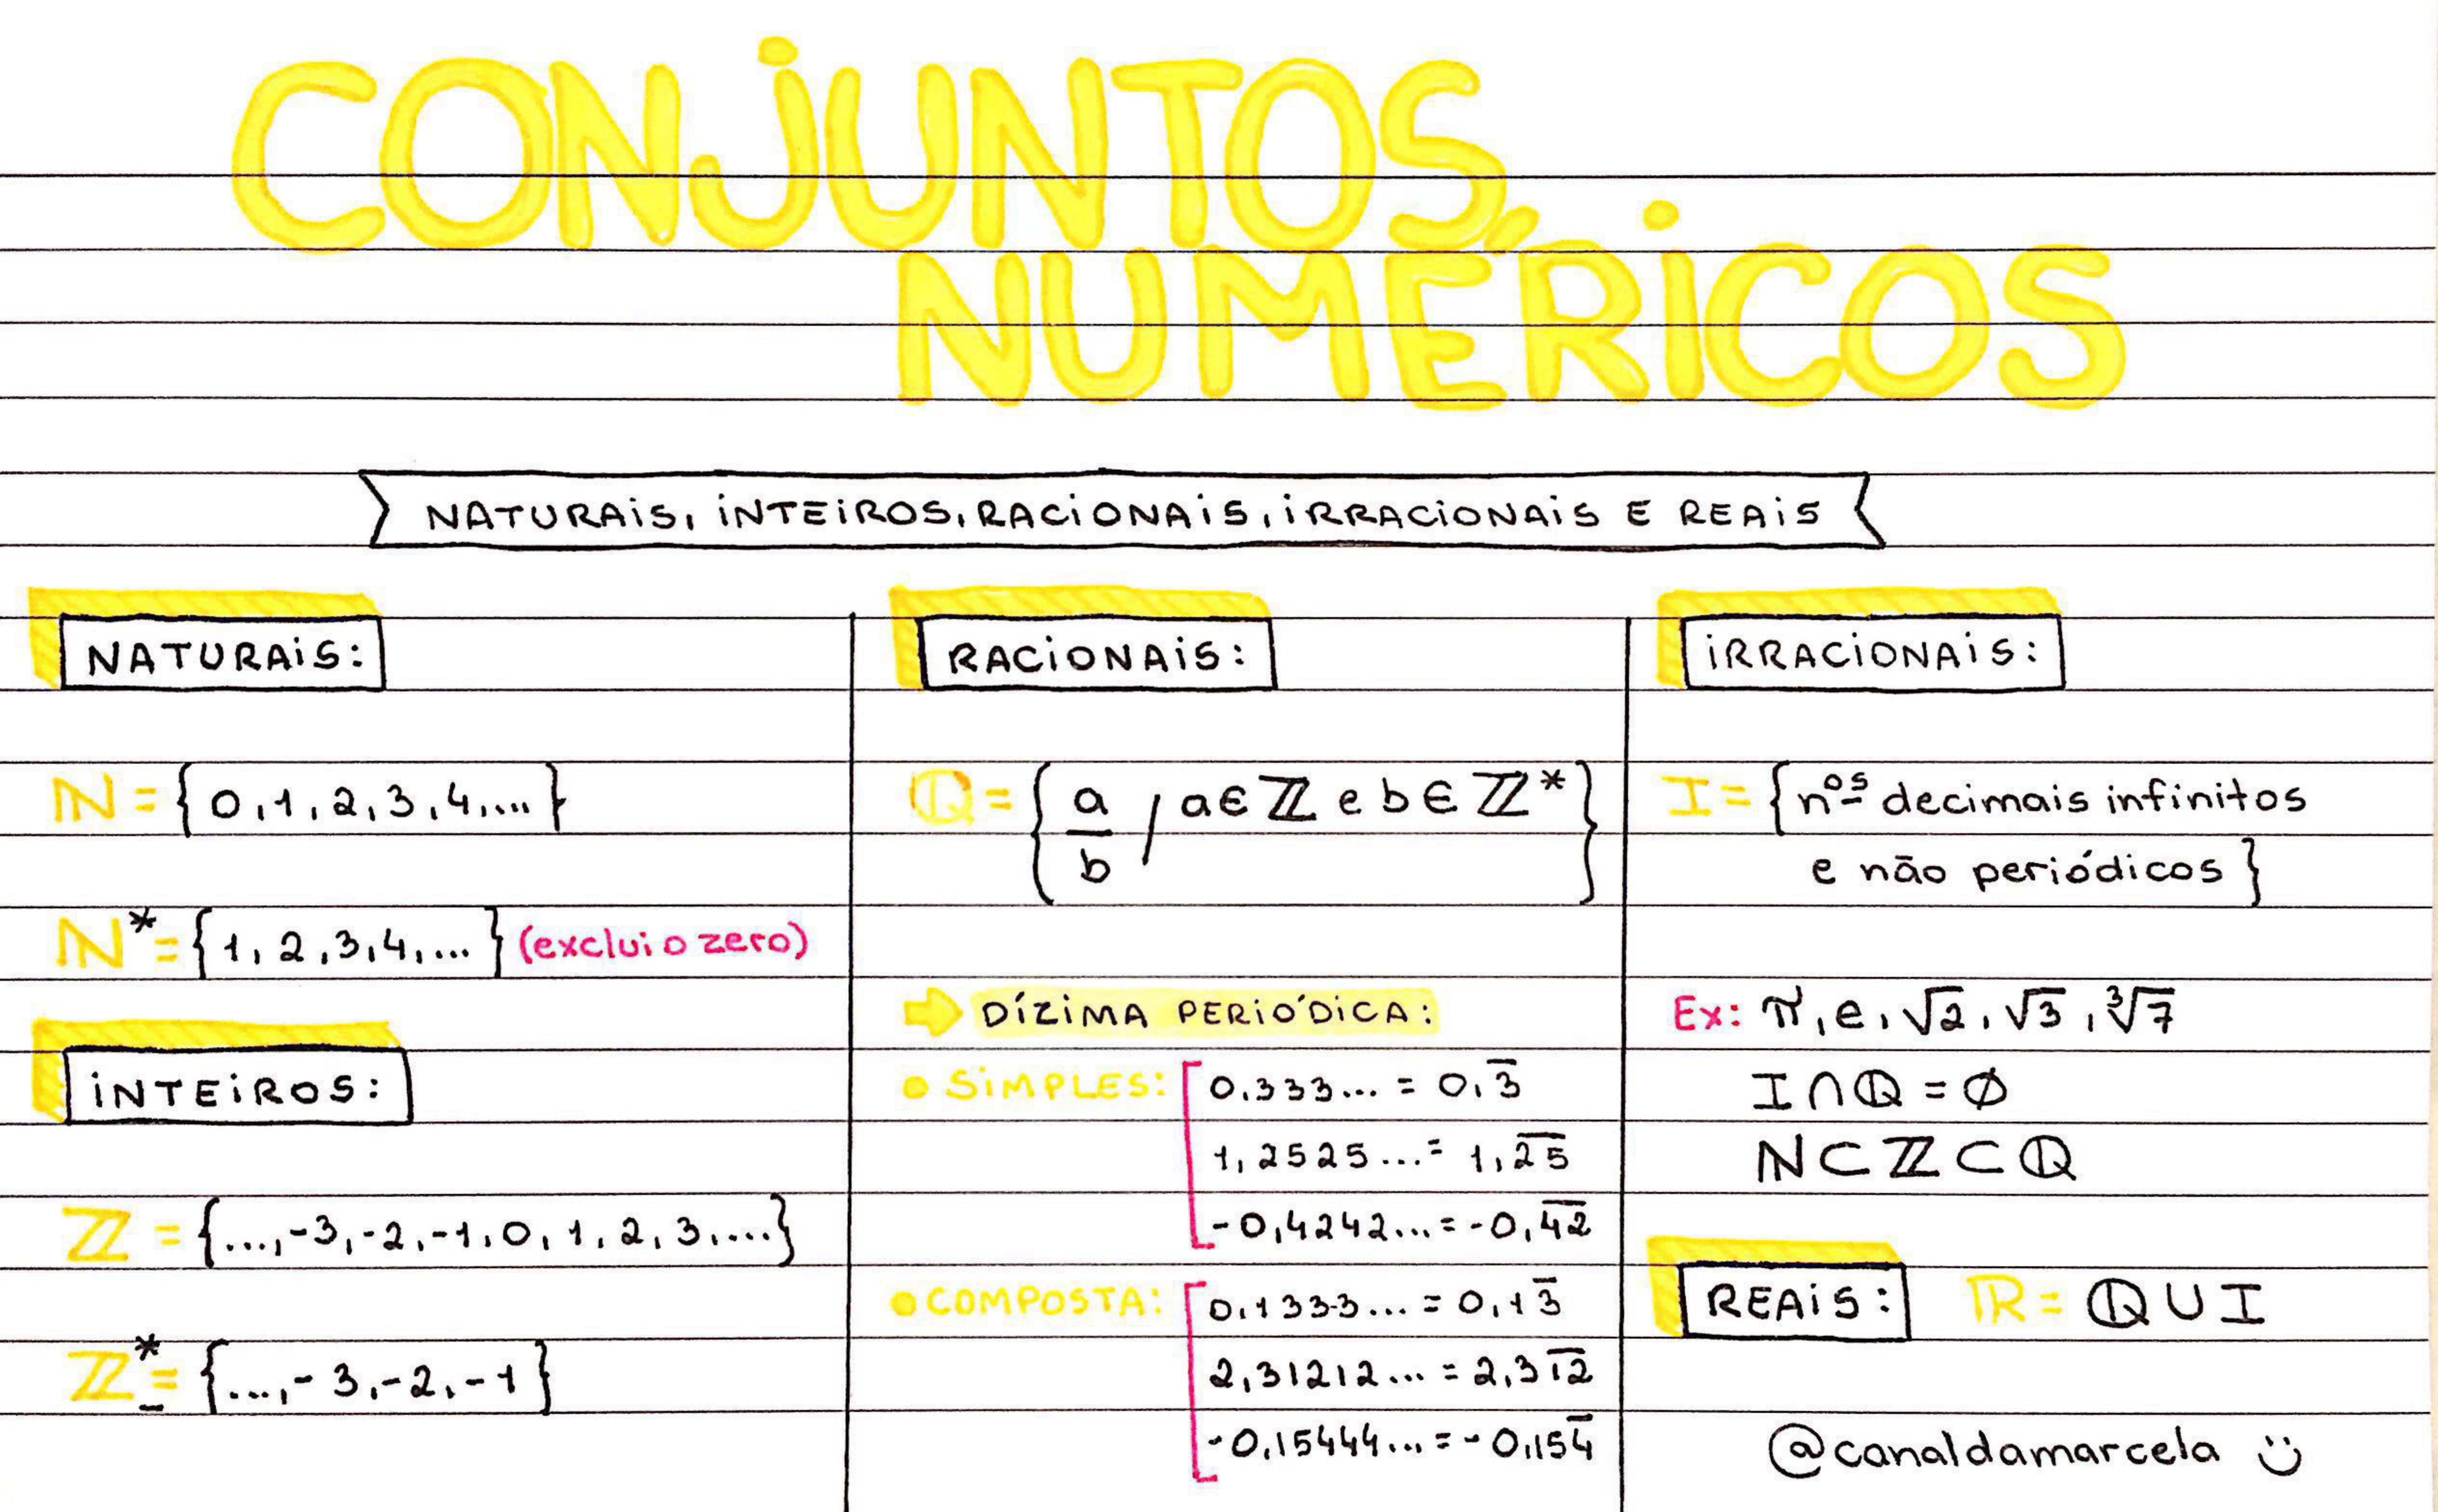 CONJUNTOS
NUMÉRICOS
NATURAIS, INTEIROS, RACIONAIS, IRRACIONAIS E REAIS
NATURAIS:
ℕ = {0, 1, 2, 3, 4, ...}
ℕ* = {1, 2, 3, 4, ...} (exclui o zero)
INTEIROS:
ℤ = {..., -3, -2, -1, 0, 1, 2, 3, ...}
ℤ*₋ = {..., -3, -2, -1}
RACIONAIS:
ℚ = {a/b / a ∈ ℤ e b ∈ ℤ*}
⇨ DÍZIMA PERIÓDICA:
• SIMPLES: [ 0,333... = 0,3̅
1,2525... = 1,2̅5̅
-0,4242... = -0,4̅2̅
• COMPOSTA: [ 0,1333... = 0,13̅
2,31212... = 2,31̅2̅
-0,15444... = -0,154̅
IRRACIONAIS:
I = {nºs decimais infinitos
e não periódicos}
Ex: π, e, √2, √3, ∛7
I ∩ ℚ = ∅
ℕ ⊂ ℤ ⊂ ℚ
REAIS: ℝ = ℚ ∪ I
@canaldamarcela